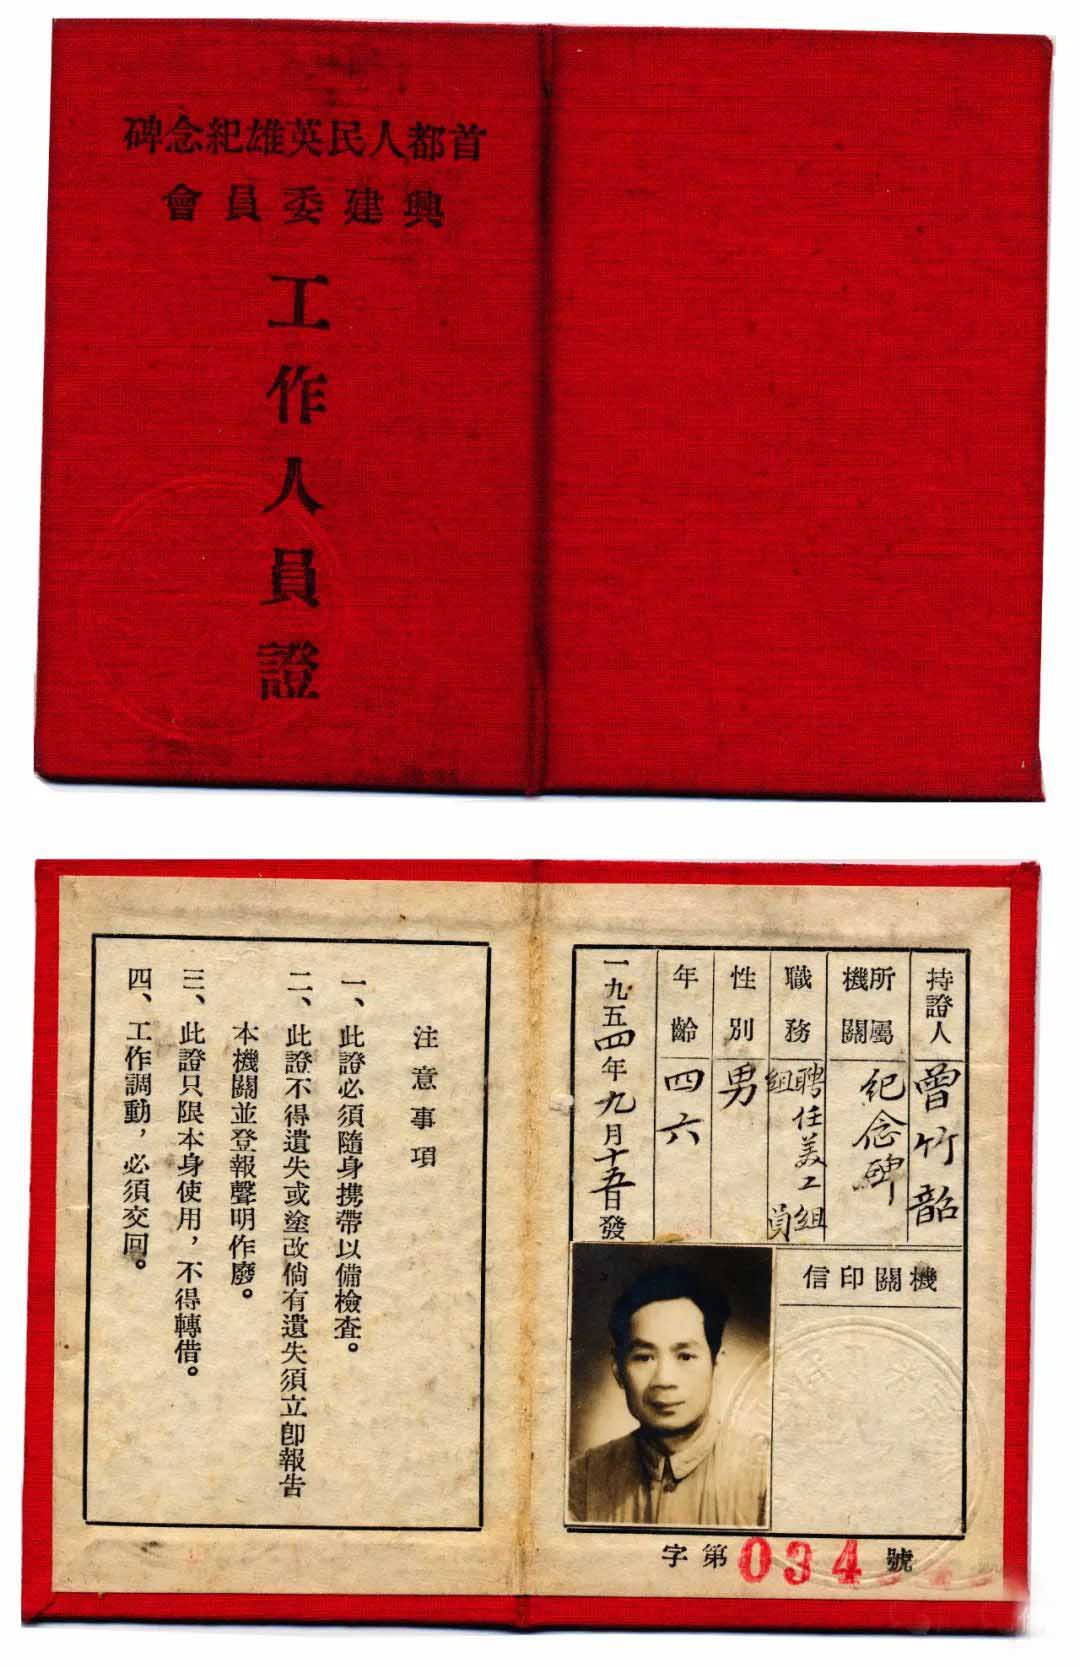 首都人民英雄紀念碑
興建委員會
工作人員證
持證人 曾竹韶
所屬機關 紀念碑
職務 聘任美工組組員
性別 男
年齡 四六
一九五四年九月十五日發
機關印信
字第034號
注意事項
一、此證必須隨身携帶以備檢查。
二、此證不得遺失或塗改倘有遺失須立卽報告
本機關並登報聲明作廢。
三、此證只限本身使用，不得轉借。
四、工作調動，必須交回。